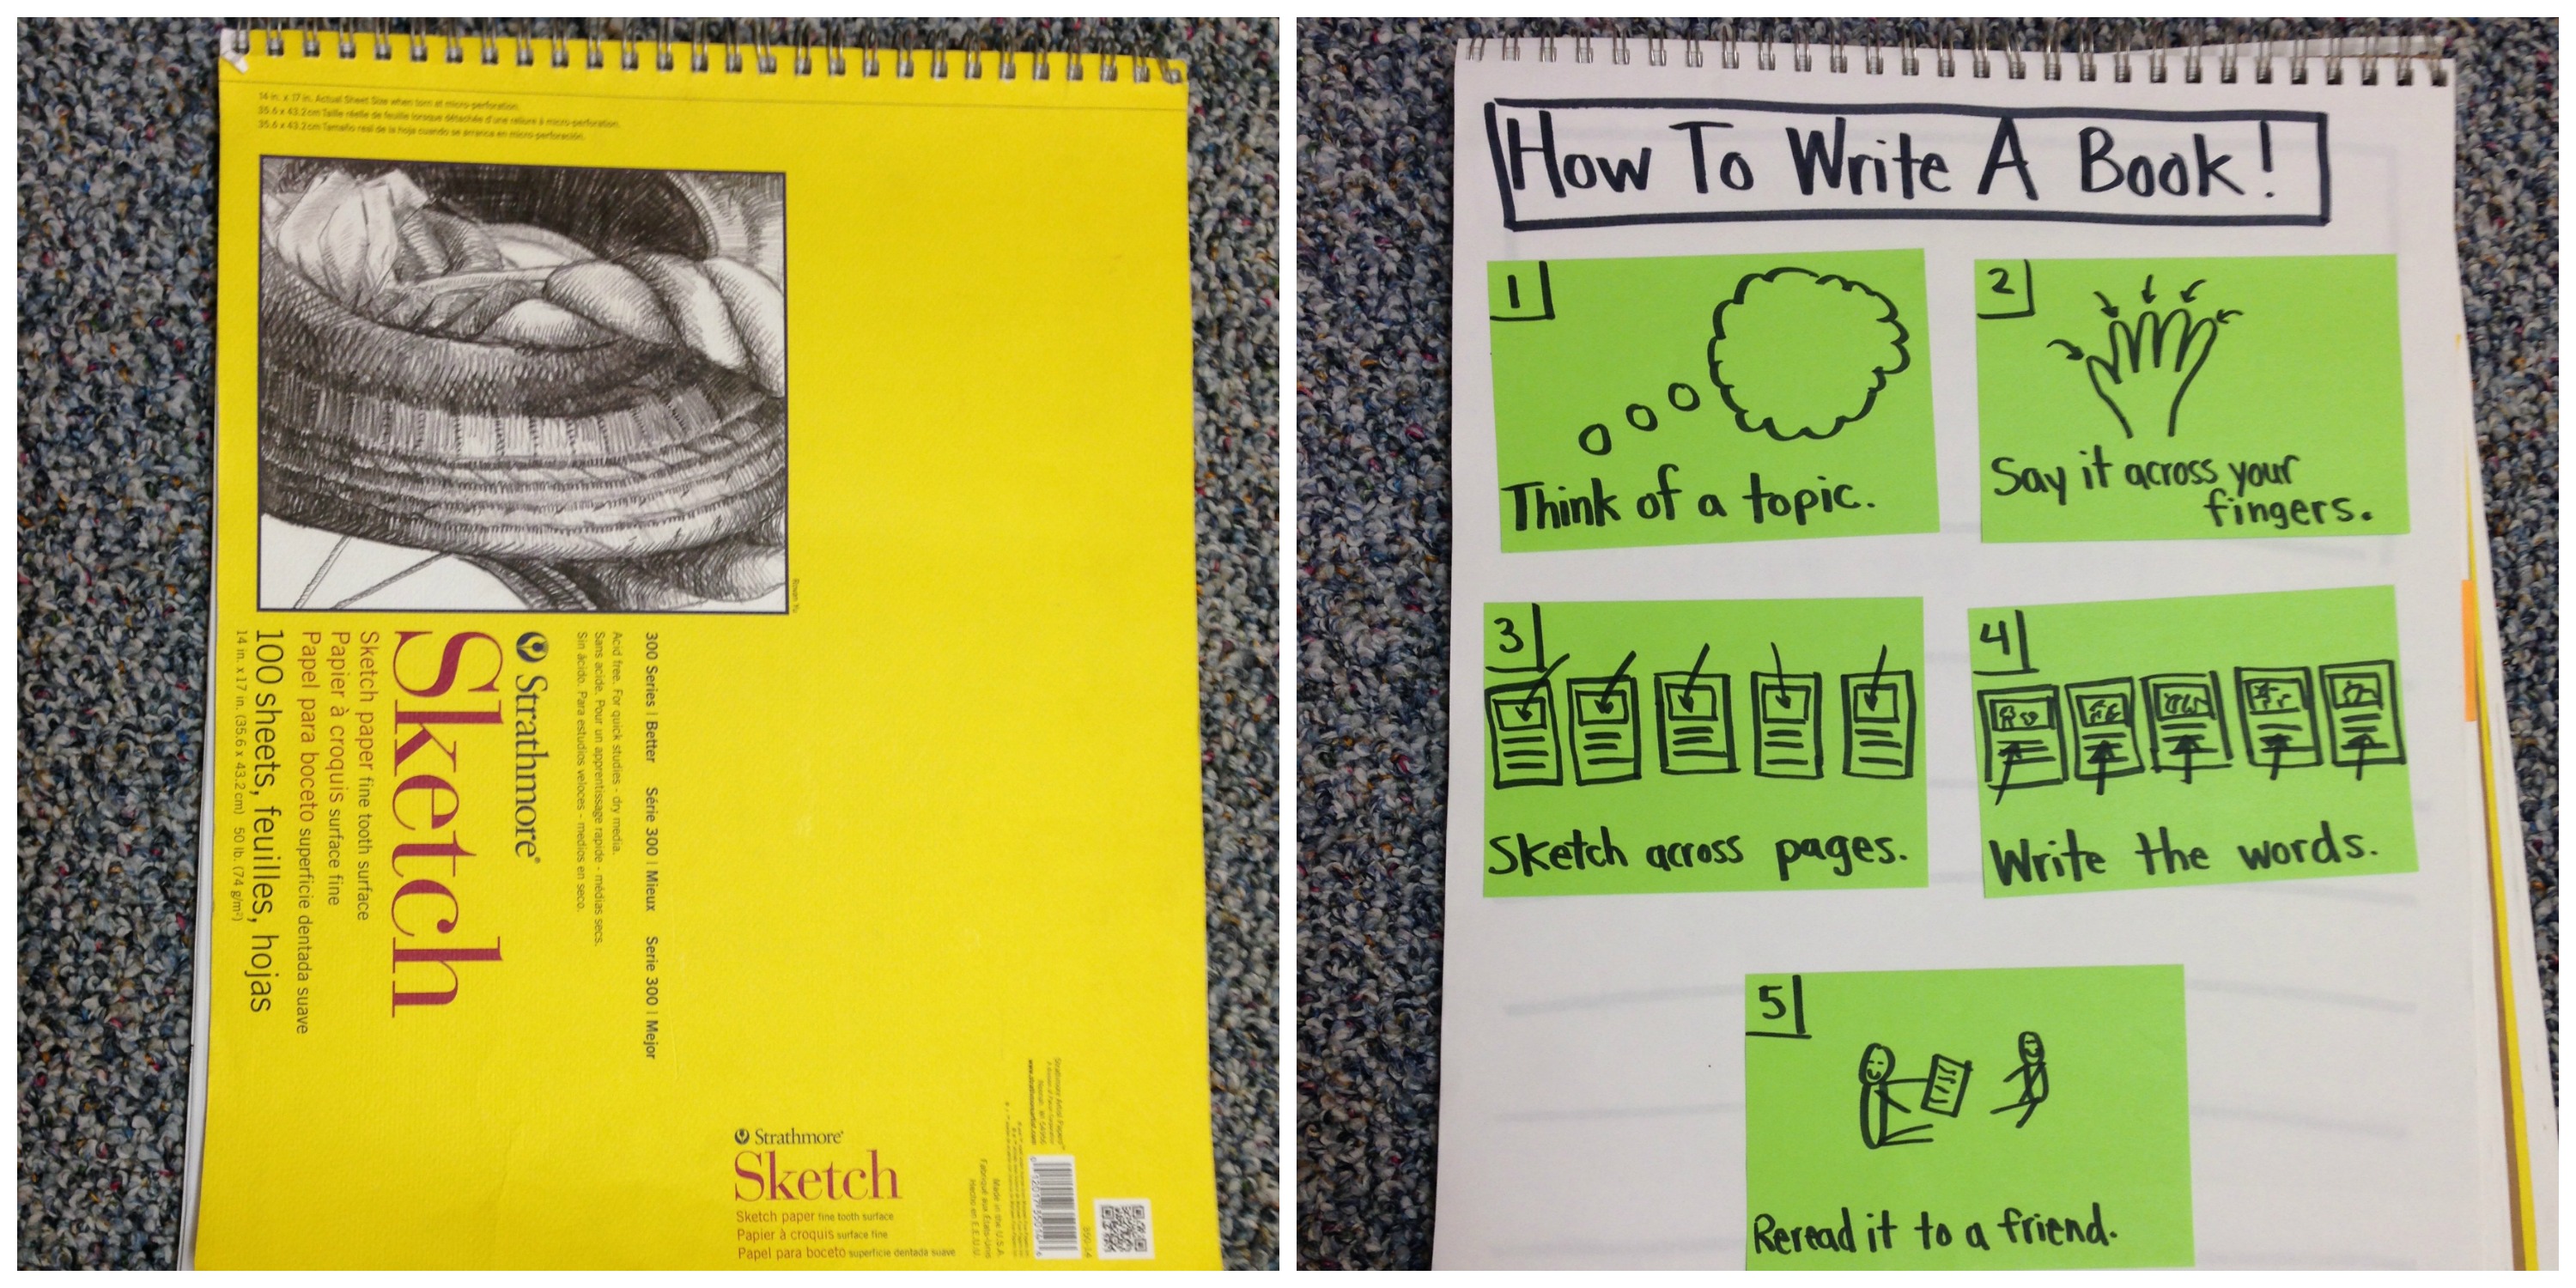 14 in. x 17 in. Actual Sheet Size when torn at micro-perforation.
35.6 x 43.2 cm Taille réelle de feuille lorsque détachée d'une reliure à micro-perforation.
35.6 x 43.2 cm Tamaño real de la hoja cuando se arranca en micro-perforación.
300 Series | Better Série 300 | Mieux Serie 300 | Mejor
Acid free. For quick studies - dry media.
Sans acide. Pour un apprentissage rapide - médias secs.
Sin ácido. Para estudios veloces - medios en seco.
Strathmore®
Sketch
Sketch paper fine tooth surface
Papier à croquis surface fine
Papel para boceto superficie dentada suave
100 sheets, feuilles, hojas
14 in. x 17 in. (35.6 x 43.2 cm) 50 lb. (74 g/m²)
Strathmore®
Sketch
Sketch paper fine tooth surface
Papier à croquis surface fine
Papel para boceto superficie dentada suave
Made in the U.S.A.
Fabriqué aux États-Unis
Hecho en E.E.U.U.
How To Write A Book!
1
Think of a topic.
2
Say it across your
fingers.
3
Sketch across pages.
4
Write the words.
5
Reread it to a friend.